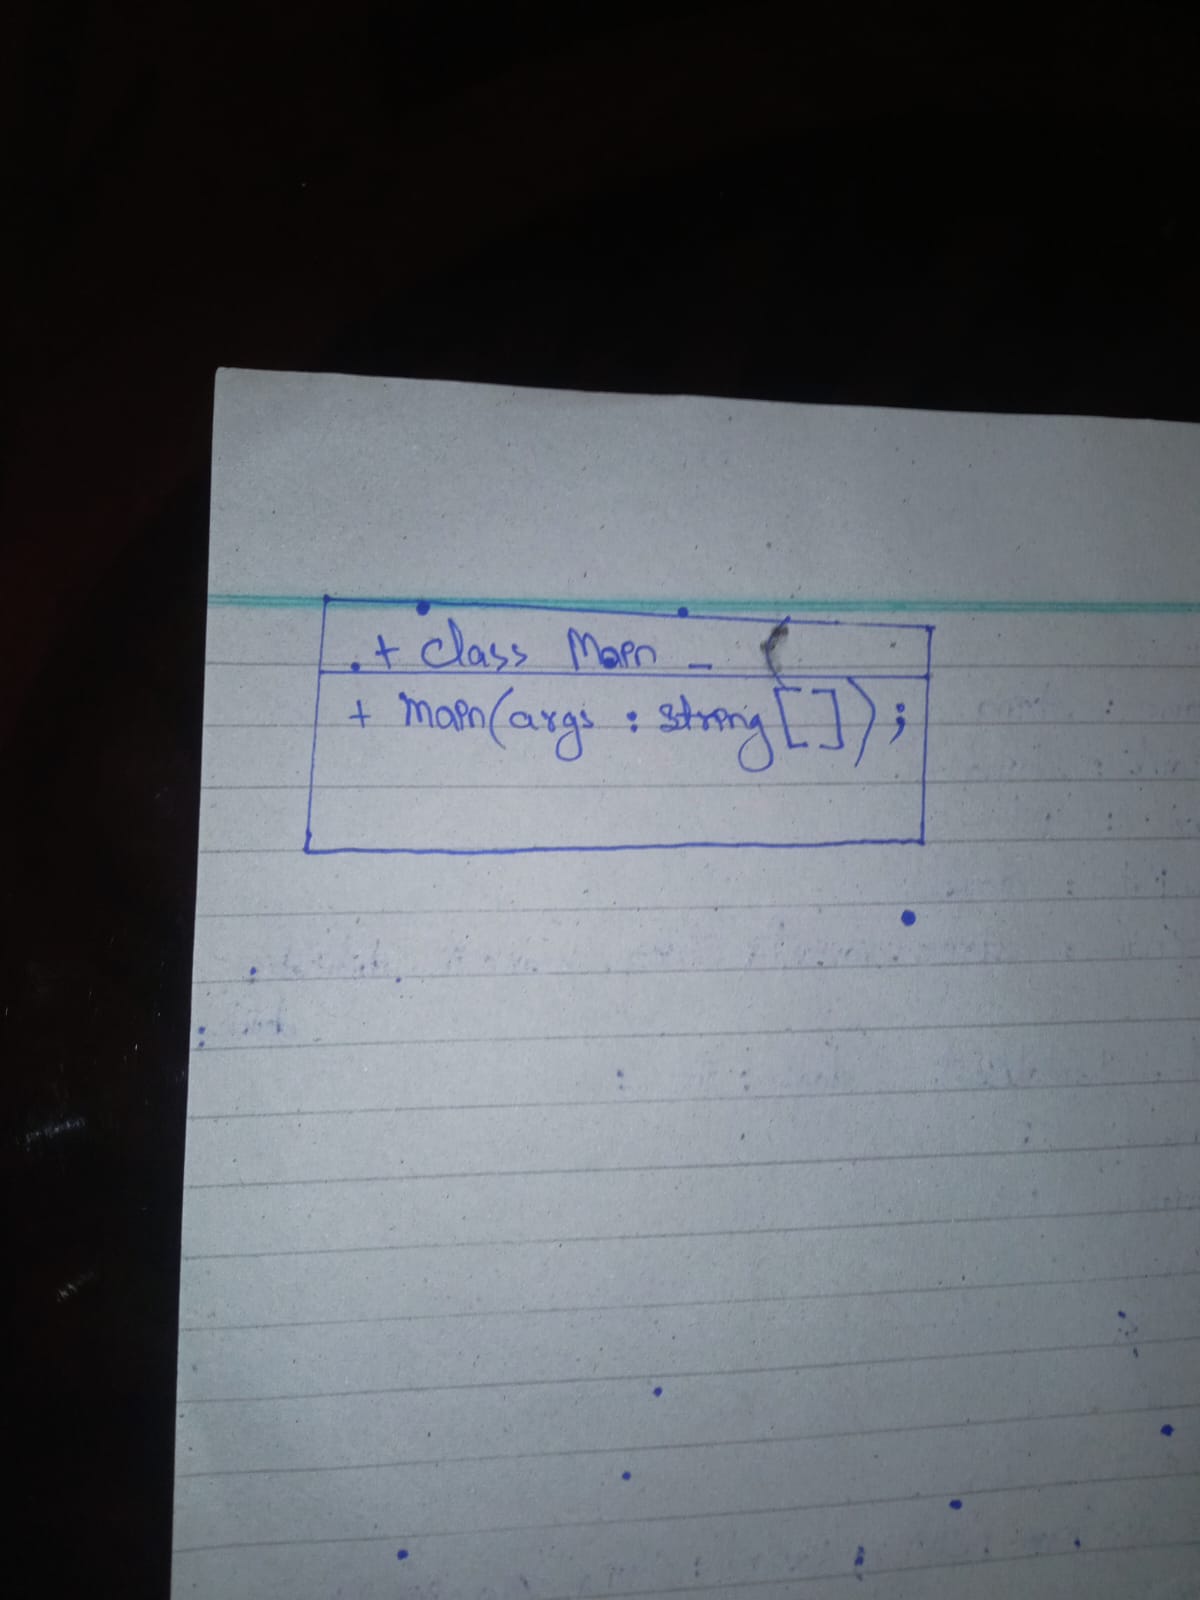 .+ class Main _ (
+ main(args : string[]);